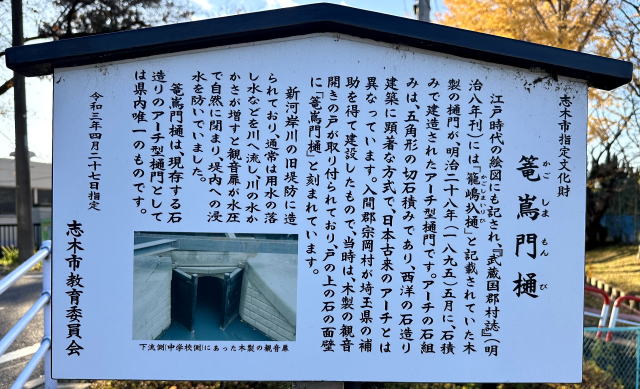 志木市指定文化財
篭嶌門樋
かごしまもんぴ
江戸時代の絵図にも記され、『武蔵国郡村誌』（明
治八年刊）には『篭嶋圦樋』と記載されていた木
かごしまいりひ
製の樋門が明治二十八年（一八九五）五月に、石積
みで建造されたアーチ型樋門です。アーチの石組
みは、五角形の切石積みであり、西洋の石造り
建築に顕著な方式で、日本古来のアーチとは
異なっています。入間郡宗岡村が埼玉県の補
助を得て建設したもので、当時は、木製の観音
開きの戸が取り付られており、戸の上の石の面壁
に「篭嶌門樋」と刻まれています。
新河岸川の旧堤防に造
られており、通常は用水の落
し水などを川へ流し、川の水か
かさが増すと観音扉が水圧
で自然に閉まり、堤内への浸
水を防いでいました。
篭嶌門樋は、現存する石
造りのアーチ型樋門として
は県内唯一のものです。
令和三年四月二十七日指定
志木市教育委員会
下流側(中学校側)にあった木製の観音扉